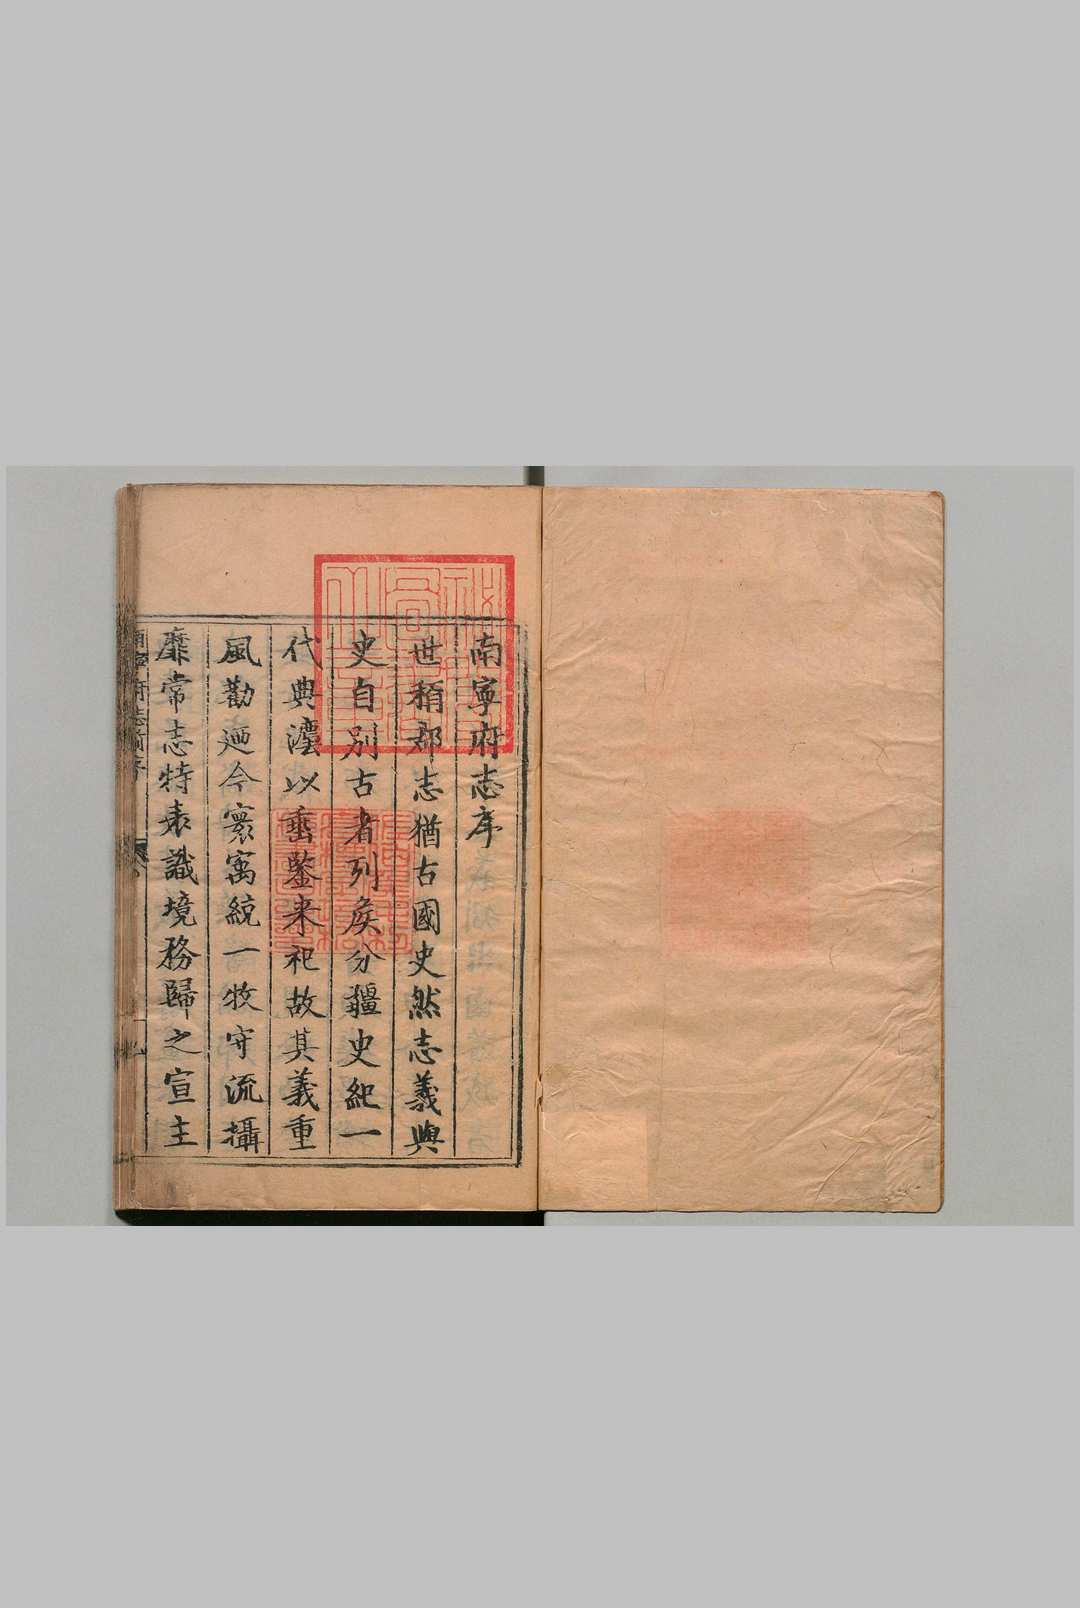 南寧府志序
世稱郡志猶古國史然志義與
史自別古者列矦分疆史紀一
代典灋以垂鑒来祀故其義重
風勸廼今寰寓統一牧守流攝
靡常志特表識境務歸之宣主
南寧府志前序